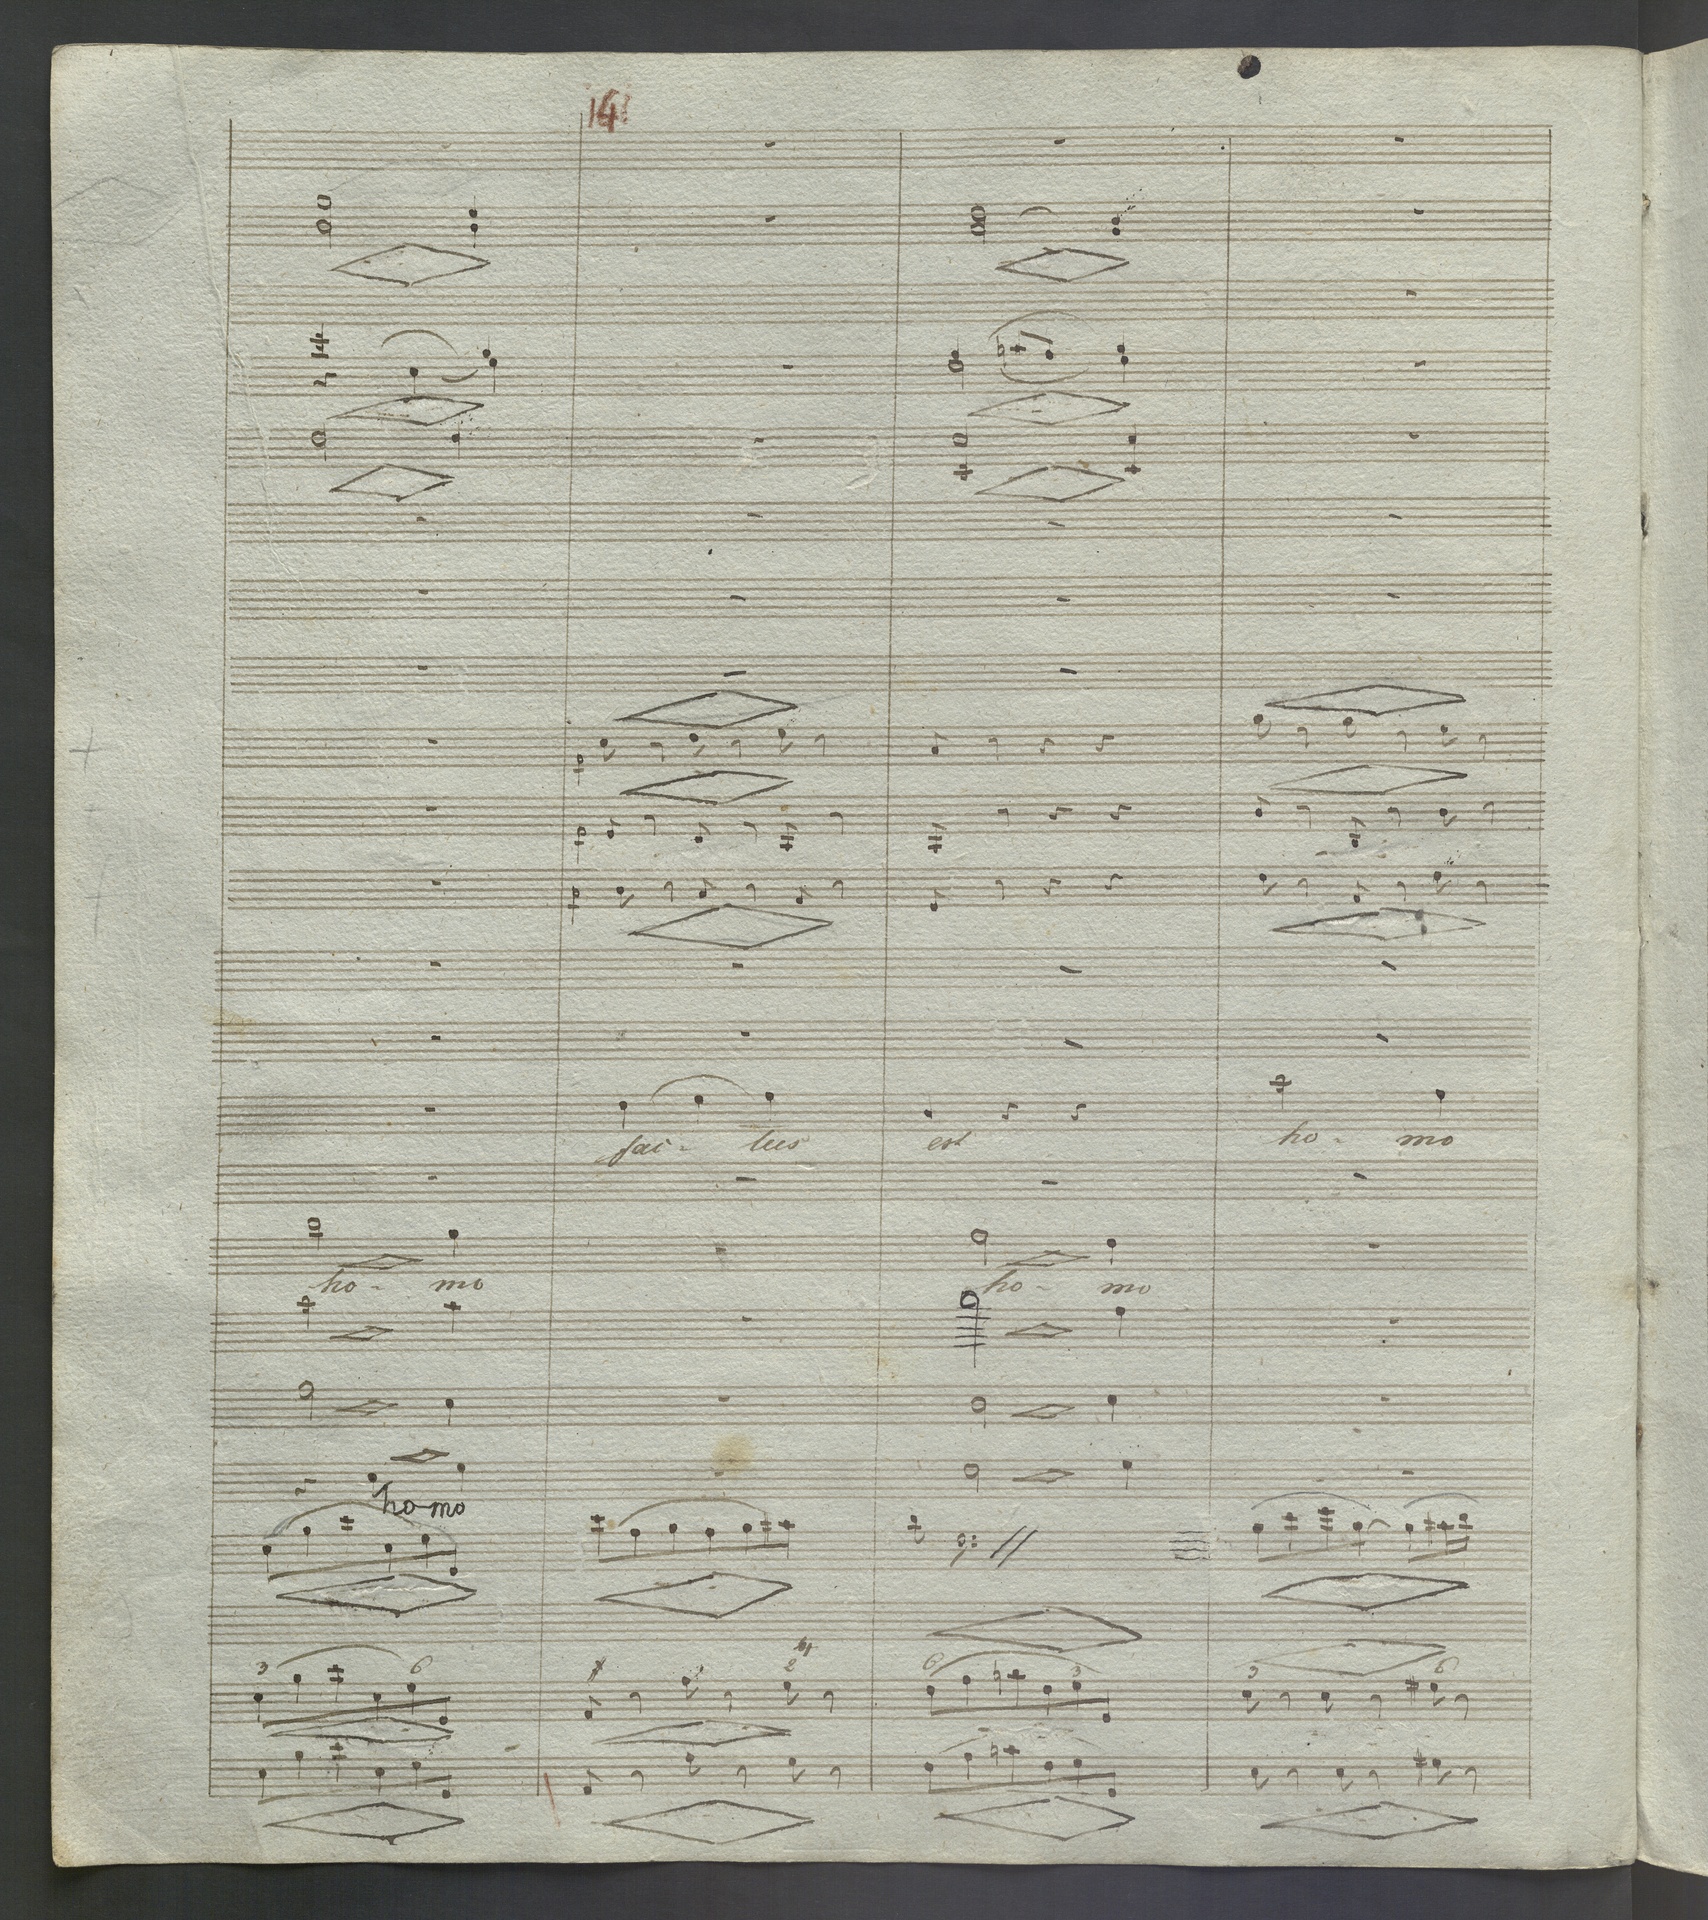 14
p
p
p
fac - tus est ho - mo
ho - mo ho - mo
ho-mo
3 6 6 3 3 6